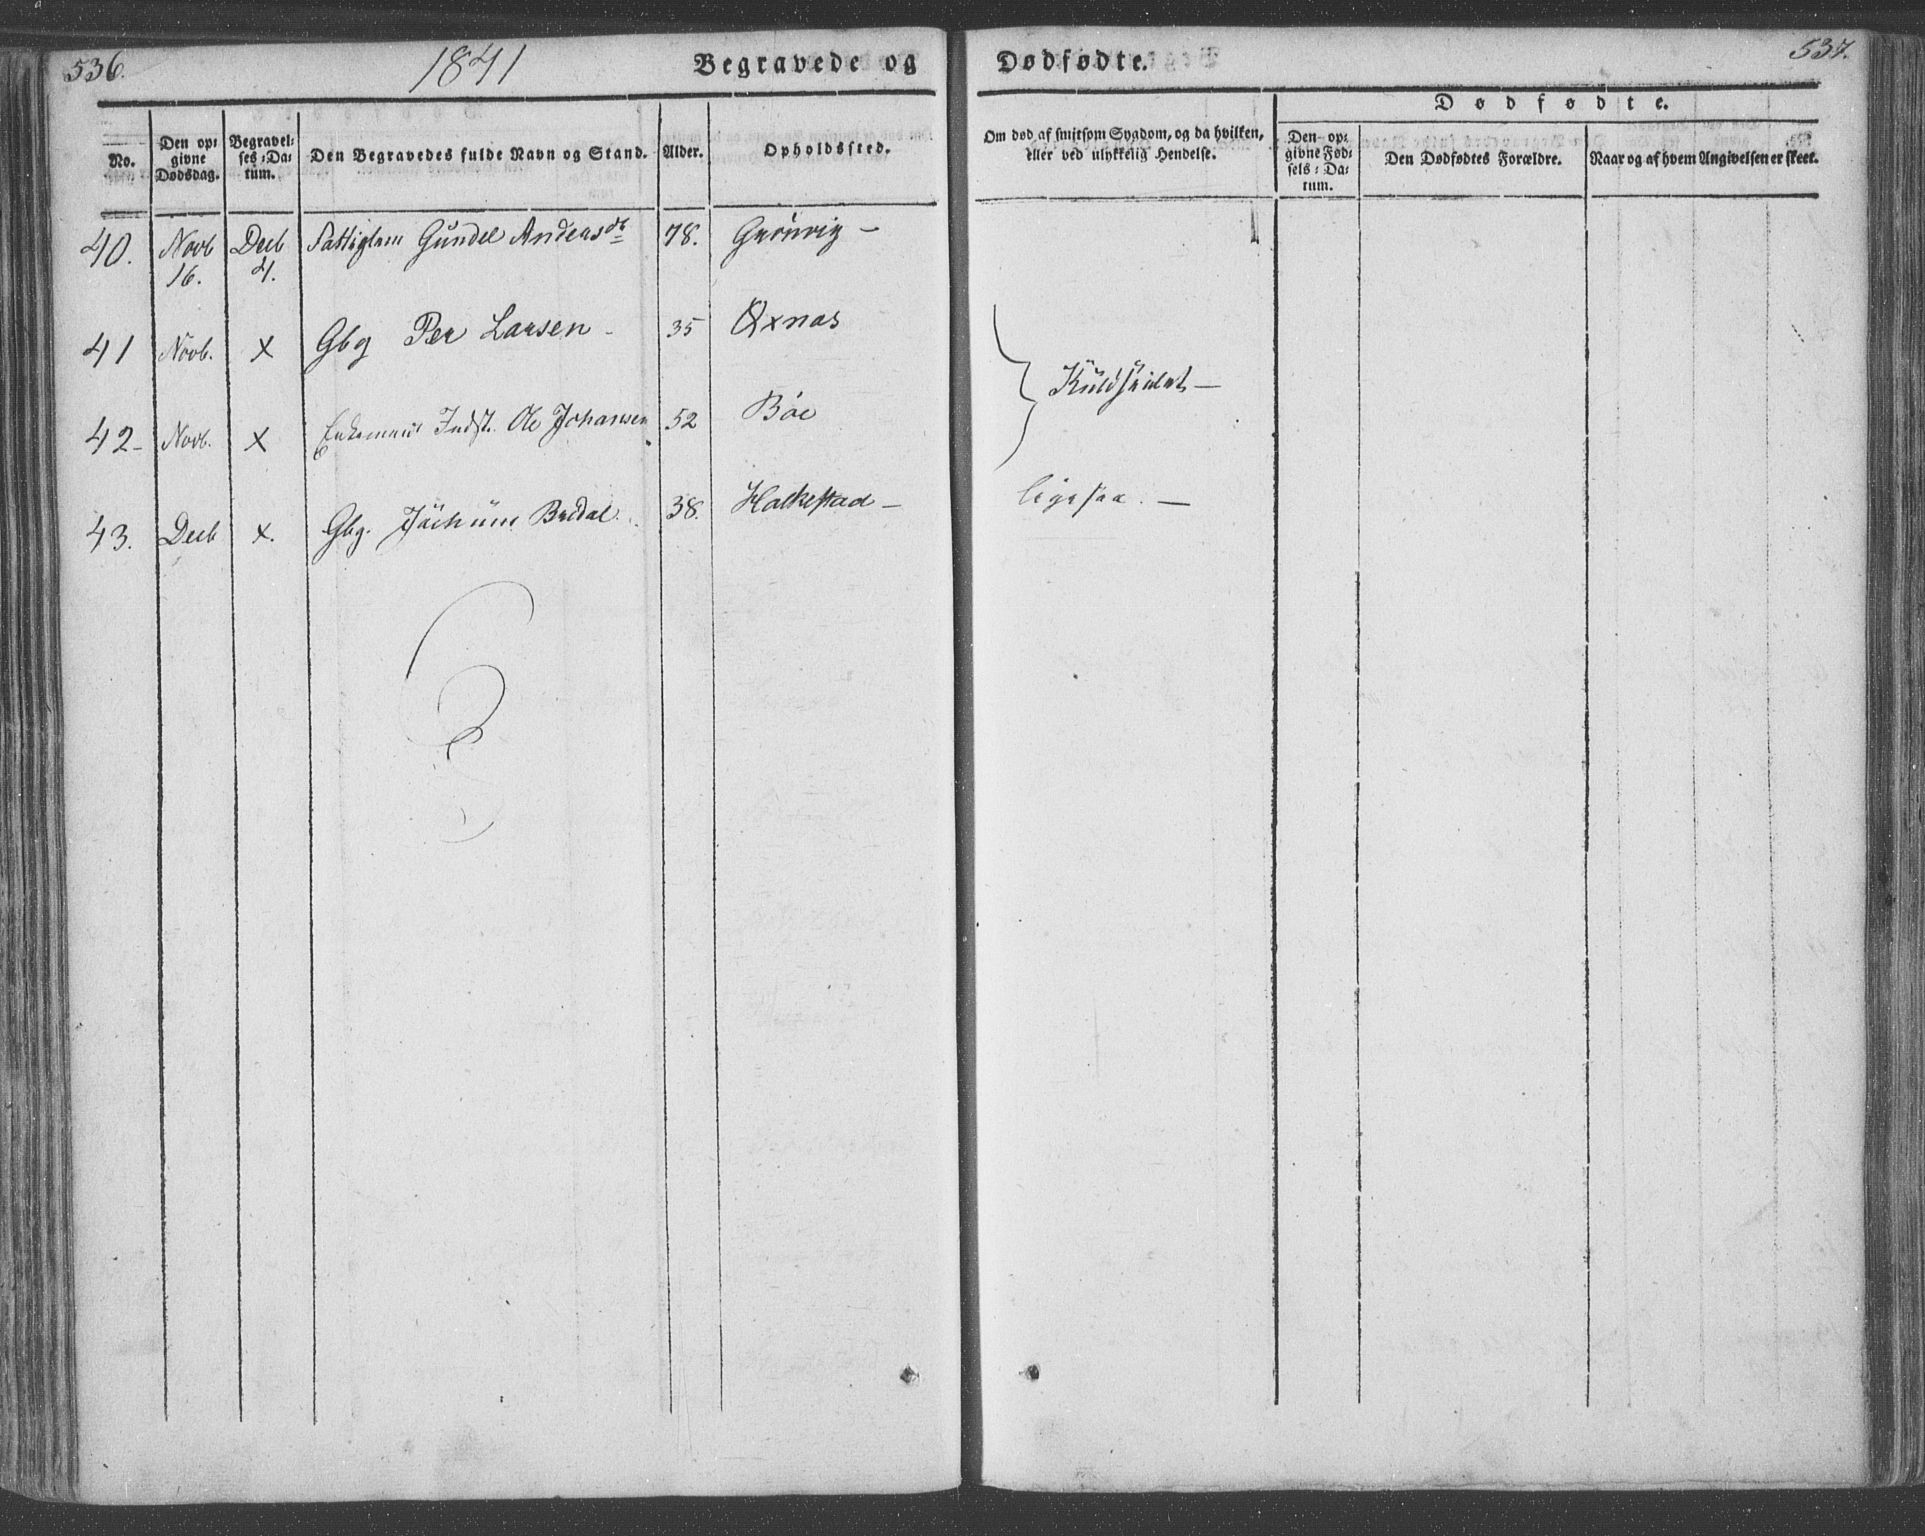 536. 1841 Begravede og Dødfødte. 537.
Dødfødte.
No.
Den op-
givne
Dødsdag.
Begravel-
ses-Da-
tum.
Den Begravedes fulde Navn og Stand.
Alder.
Opholdssted.
Om død af smitsom Sygdom, og da hvilken,
eller ved ulykkelig Hendelse.
Den op-
givne Fød-
sels-Da-
tum.
Den Dødfødtes Forældre.
Naar og af hvem Angivelsen er skeet.
40. Novb 16. Decb 4. Fattiglem Gundel Andersdr 78. Grönvig –
41 Novb. x Gbg Per Larsen – 35 Øxnas
42 – Novb. x Enkemand Indst. Ole Johansen 52 Böe
Kuldseilet –
43. Decb x. Gbg. Jochum Bredal. 38. Halkestad – ligesaa. –